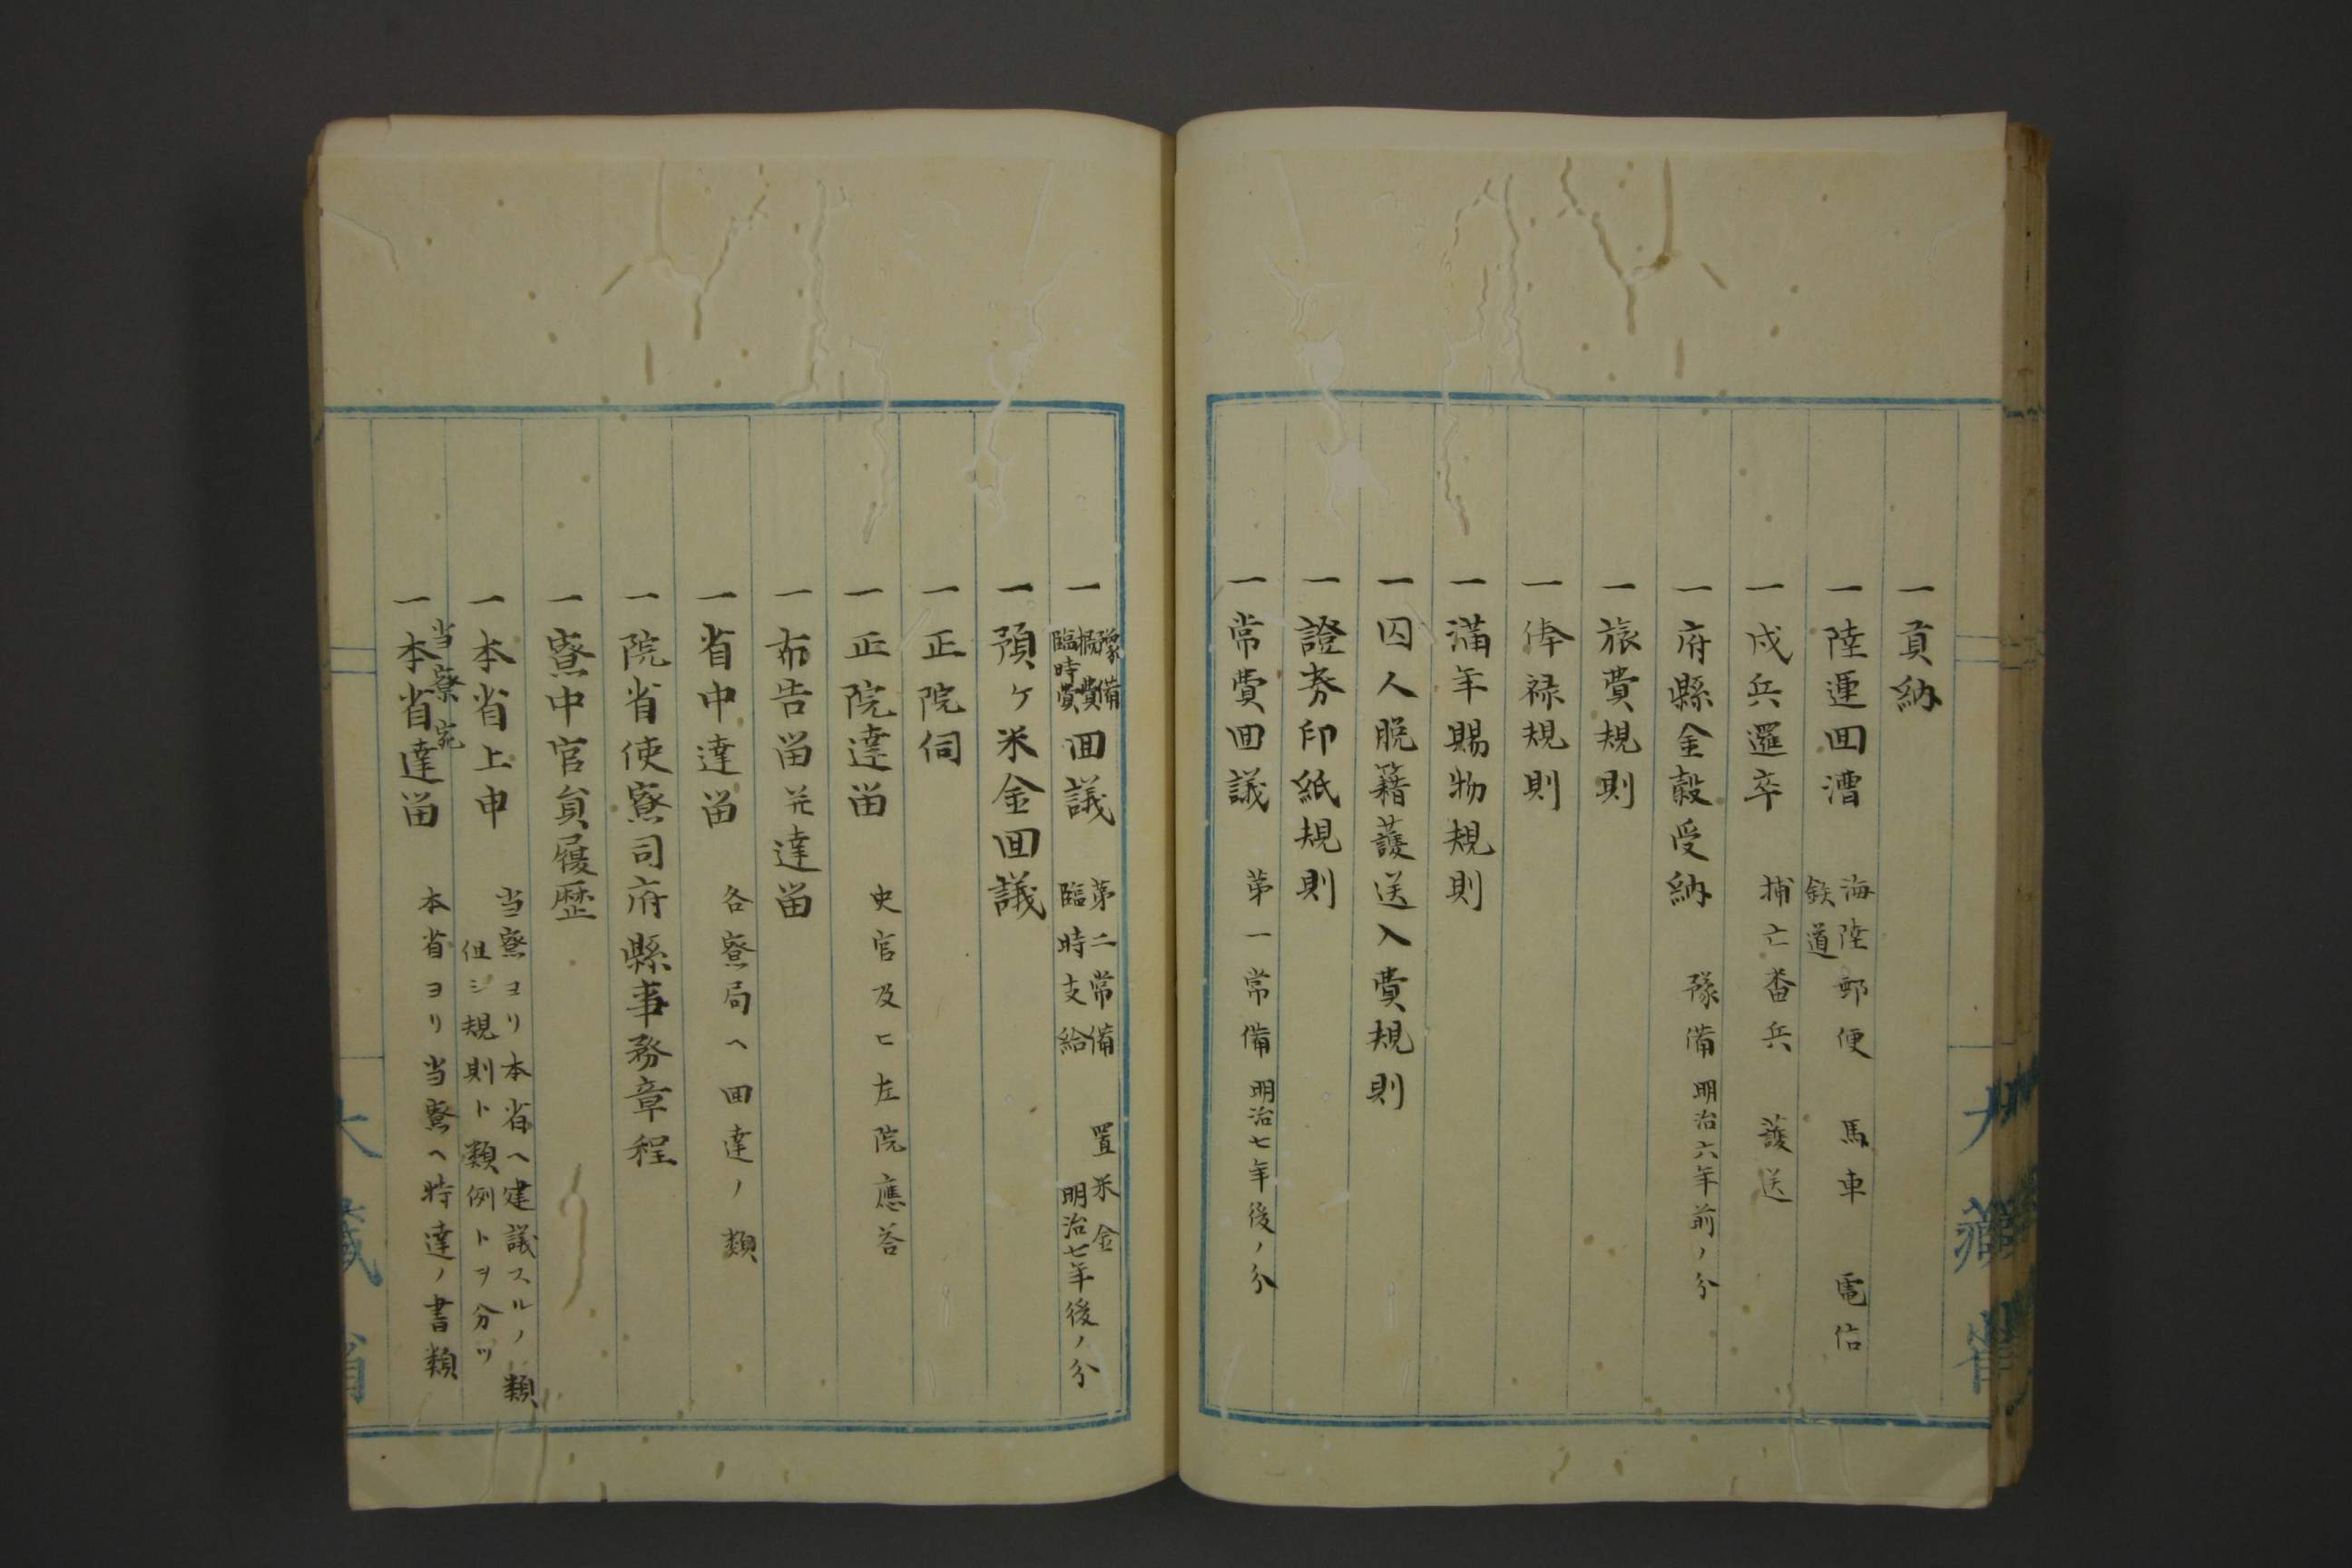 一貢納
一陸運回漕 海陸郵便 馬車 電信
鉄道
一戍兵邏卒 捕亡番兵 護送
一府縣金穀受納 豫備 明治六年前ノ分
一旅費規則
一俸禄規則
一満年賜物規則
一囚人脱籍護送入費規則
一證券印紙規則
一常費回議 第一常備 明治七年後ノ分
一豫備
概費
臨時費
回議 第二常備 置米金
臨時支給 明治七年後ノ分
一預ケ米金回議
一正院伺
一正院達留 史官及ヒ左院應答
一布告留并達留
一省中達留 各寮局ヘ回達ノ類
一院省使寮司府縣事務章程
一寮中官員履歴
一本省上申 当寮ヨリ本省ヘ建議スルノ類
但シ規則ト類例トヲ分ツ
当寮宛
一本省達留 本省ヨリ当寮ヘ特達ノ書類
大藏省